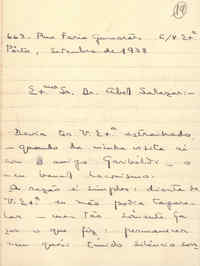 19
662. Rua Faria Guimarães C/V. Exª
Pôrto, Setembro de 1938
Exmo Sr. Dr. Abel Salazar:—
Devia ter V. Exª estranhado,
— quando da minha visita
amigo Garibaldi — o
meu banal laconismo.
A razão é simples: diante de
V. Exª. eu não podia tagare-
lar — mas tão sòmente fa-
zer o que fiz: permanecer
num quási tímido silêncio